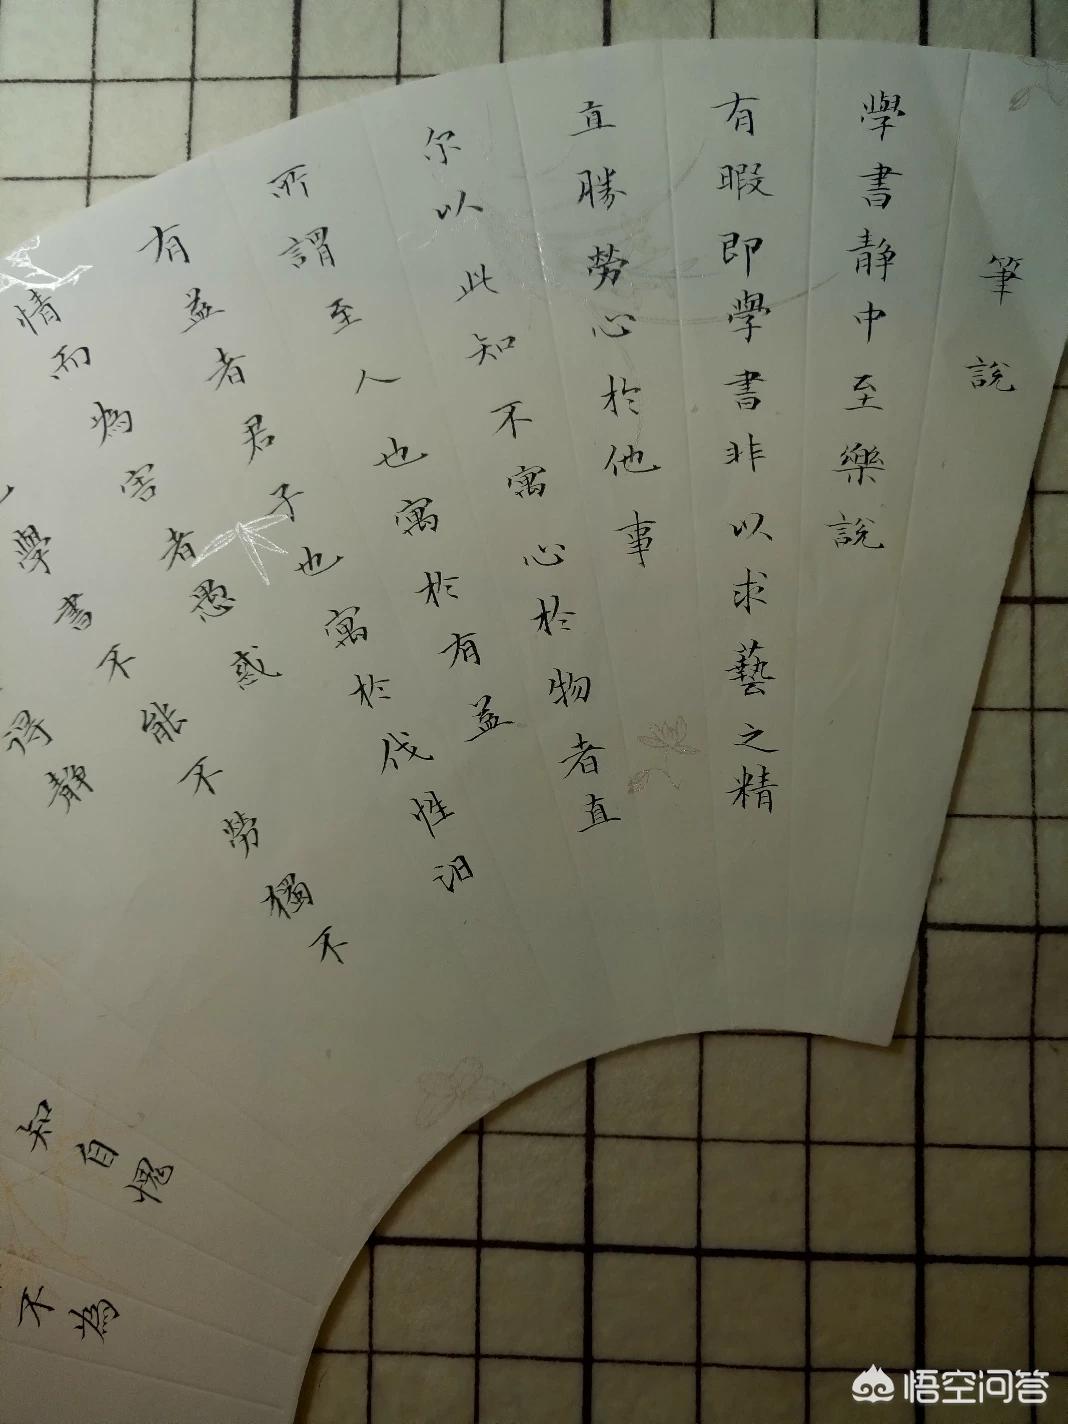 筆說
學書靜中至樂說
有暇即學書非以求藝之精
直勝勞心於他事
尔以此知不寓心於物者直
所謂至人也寓於有益
有益者君子也寓於伐性汩
情而為害者愚惑
學書不能不勞獨不
得靜
知自愧
不為
悟空问答